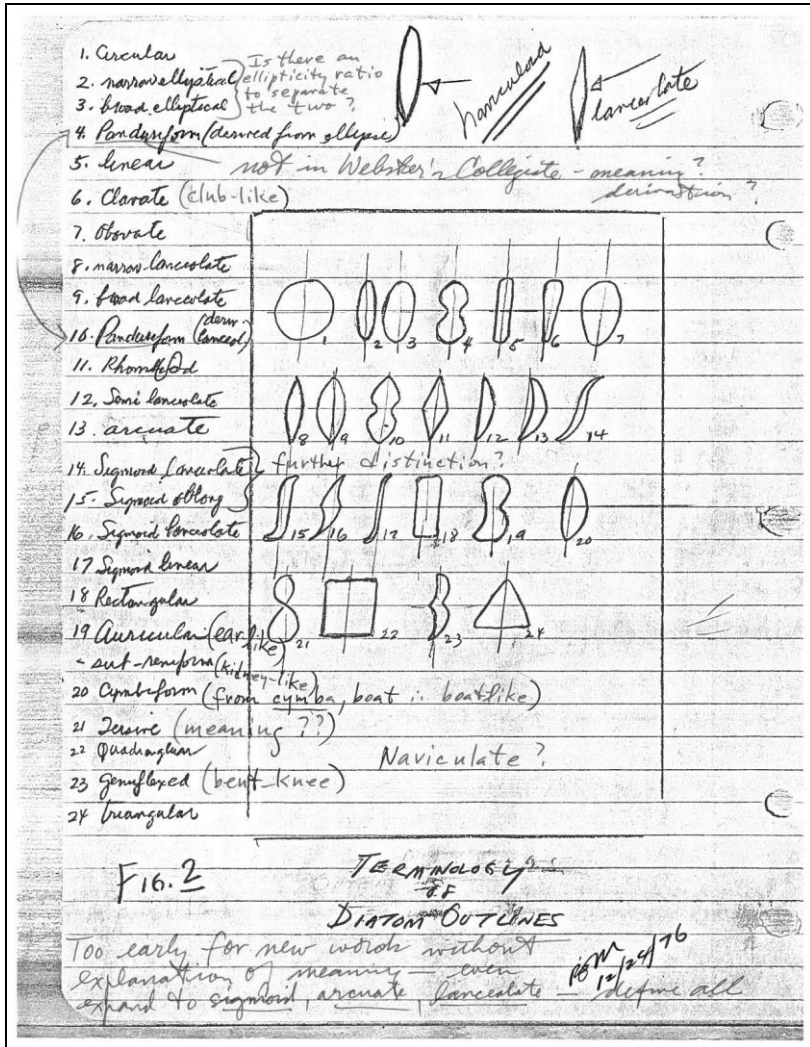 1. Circular
2. narrow elliptical
3. broad elliptical
Is there an
ellipticity ratio
to separate
the two?
lanceolate
4. Panduriform (derived from ellipse)
5. linear
not in Webster's Collegiate - meaning?
derivation?
6. Clavate (club-like)
7. Obovate
8. narrow lanceolate
9. broad lanceolate
10. Panduriform (deriv- lanceol)
11. Rhomboid
12. Semi lanceolate
13. arcuate
14. Sigmoid lanceolate
further distinction?
15. Sigmoid oblong
16. Sigmoid lanceolate
17 Sigmoid linear
18 Rectangular
19 Auricular (ear-like)
- sub-reniform (kidney-like)
20 Cymbiform (from cymba, boat ∴ boatlike)
21 (meaning ??)
22 Quadrangular
23 genuflexed (bent-knee)
24 triangular
1 2 3 4 5 6 7
8 9 10 11 12 13 14
15 16 17 18 19 20
21 22 23 24
Naviculate?
FIG. 2
TERMINOLOGY
OF
DIATOM OUTLINES
Too early for new words without
explanation of meaning — even
expand to sigmoid, arcuate, lanceolate — define all
12/24/76